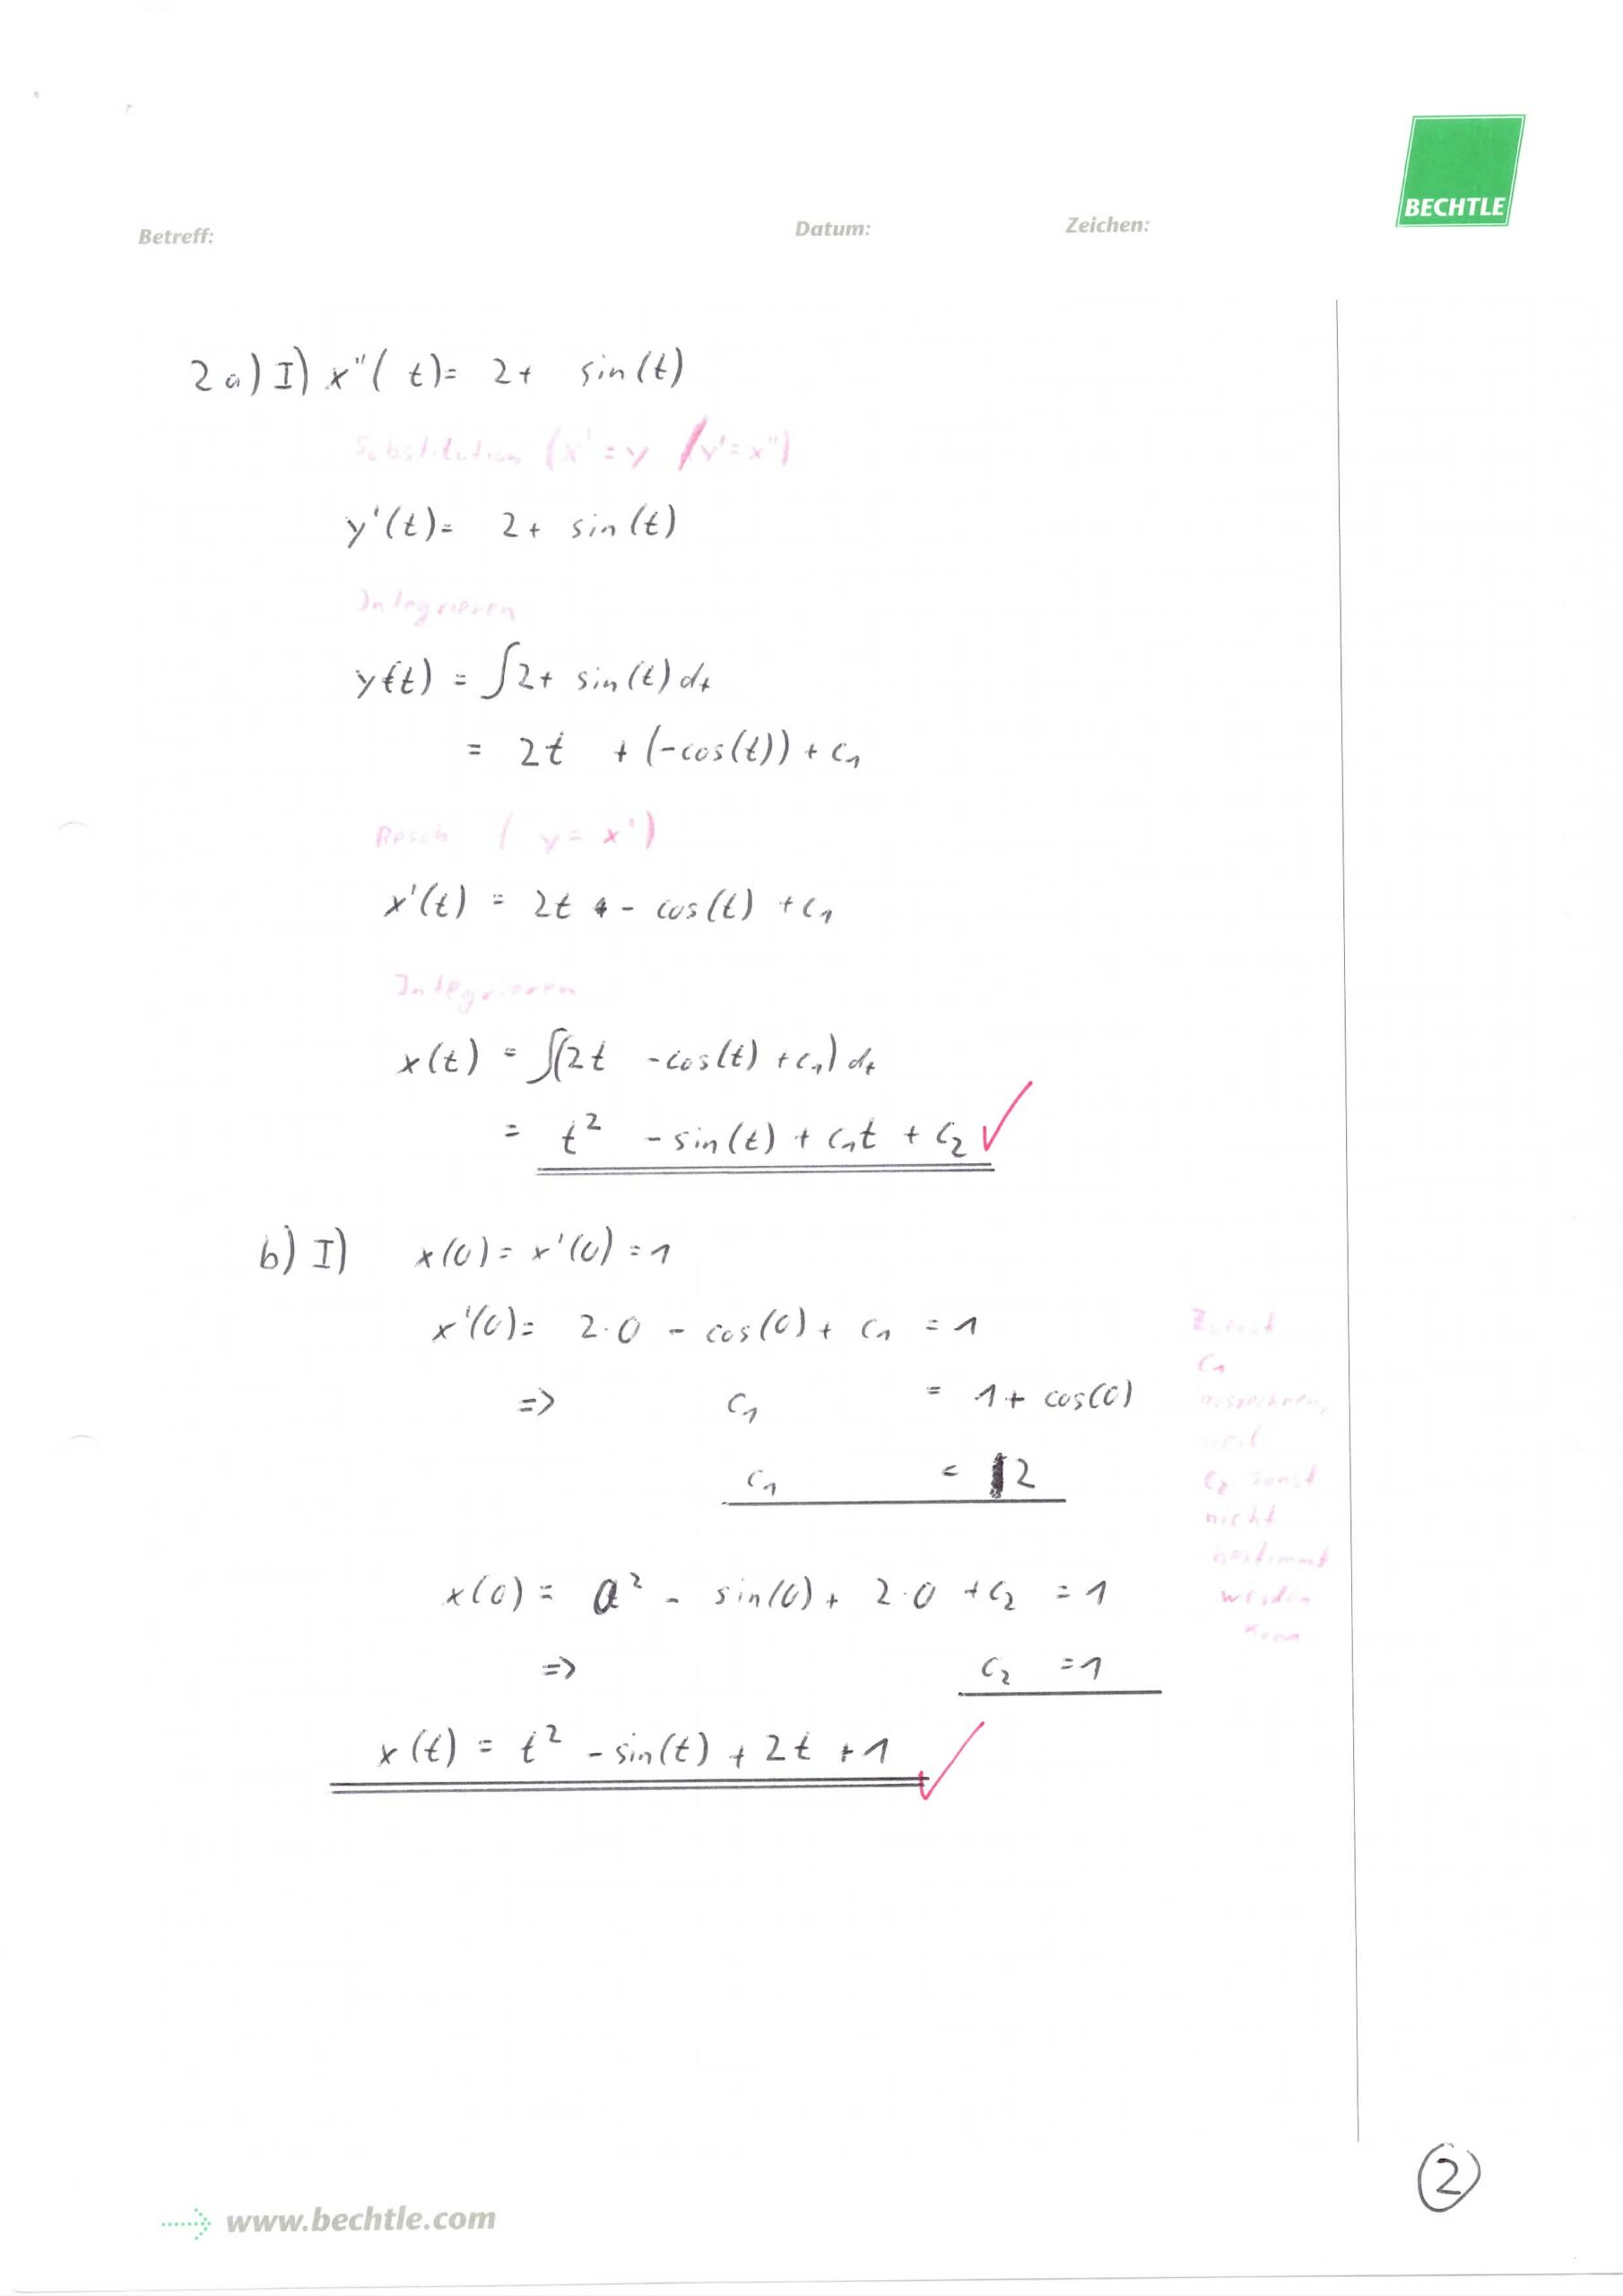 BECHTLE
Betreff: Datum: Zeichen:
2a) I) x''(t) = 2 + sin(t)
Substitution (x' = y / y' = x'')
y'(t) = 2 + sin(t)
Integrieren
y(t) = ∫2 + sin(t) dt
= 2t + (-cos(t)) + c₁
Resub (y = x')
x'(t) = 2t - cos(t) + c₁
Integrieren
x(t) = ∫(2t - cos(t) + c₁) dt
= t² - sin(t) + c₁t + c₂ ✓
b) I) x(0) = x'(0) = 1
x'(0) = 2·0 - cos(0) + c₁ = 1
=> c₁ = 1 + cos(0)
c₁ = 2
Zuerst
c₁
ausrechnen,
weil
c₂ sonst
nicht
bestimmt
werden
kann
x(0) = 0² - sin(0) + 2·0 + c₂ = 1
=> c₂ = 1
x(t) = t² - sin(t) + 2t + 1 ✓
2
www.bechtle.com